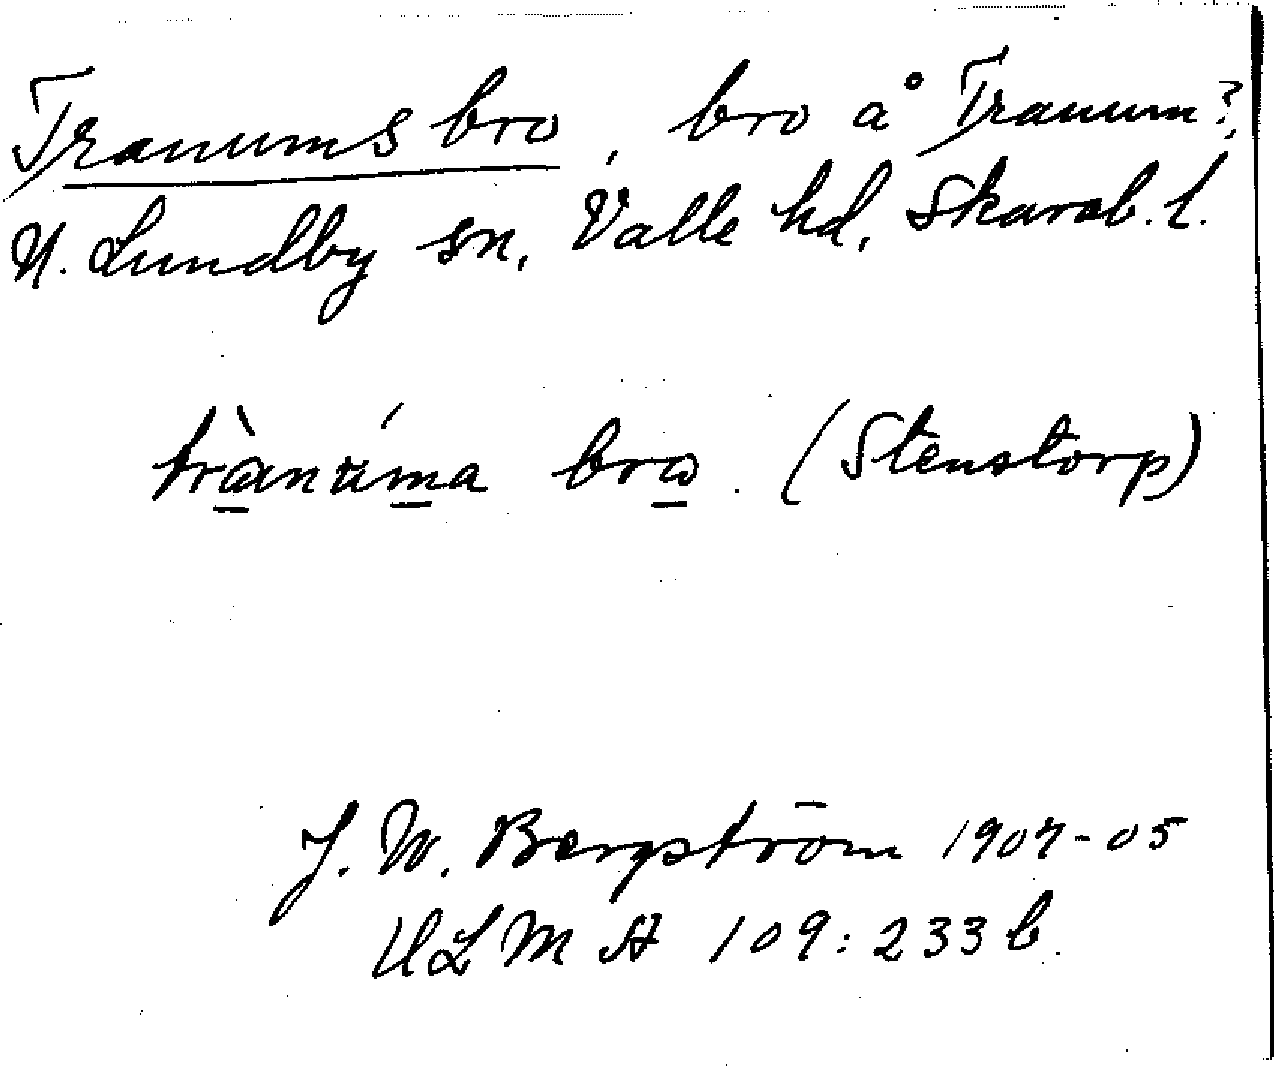 Tranums bro, bro å Tranum?
N. Lundby sn, Valle hd, Skarab. l.
trànúma bro. (Stenstorp)
J. W. Bergström 1904-05
ULMA 109:233 b.